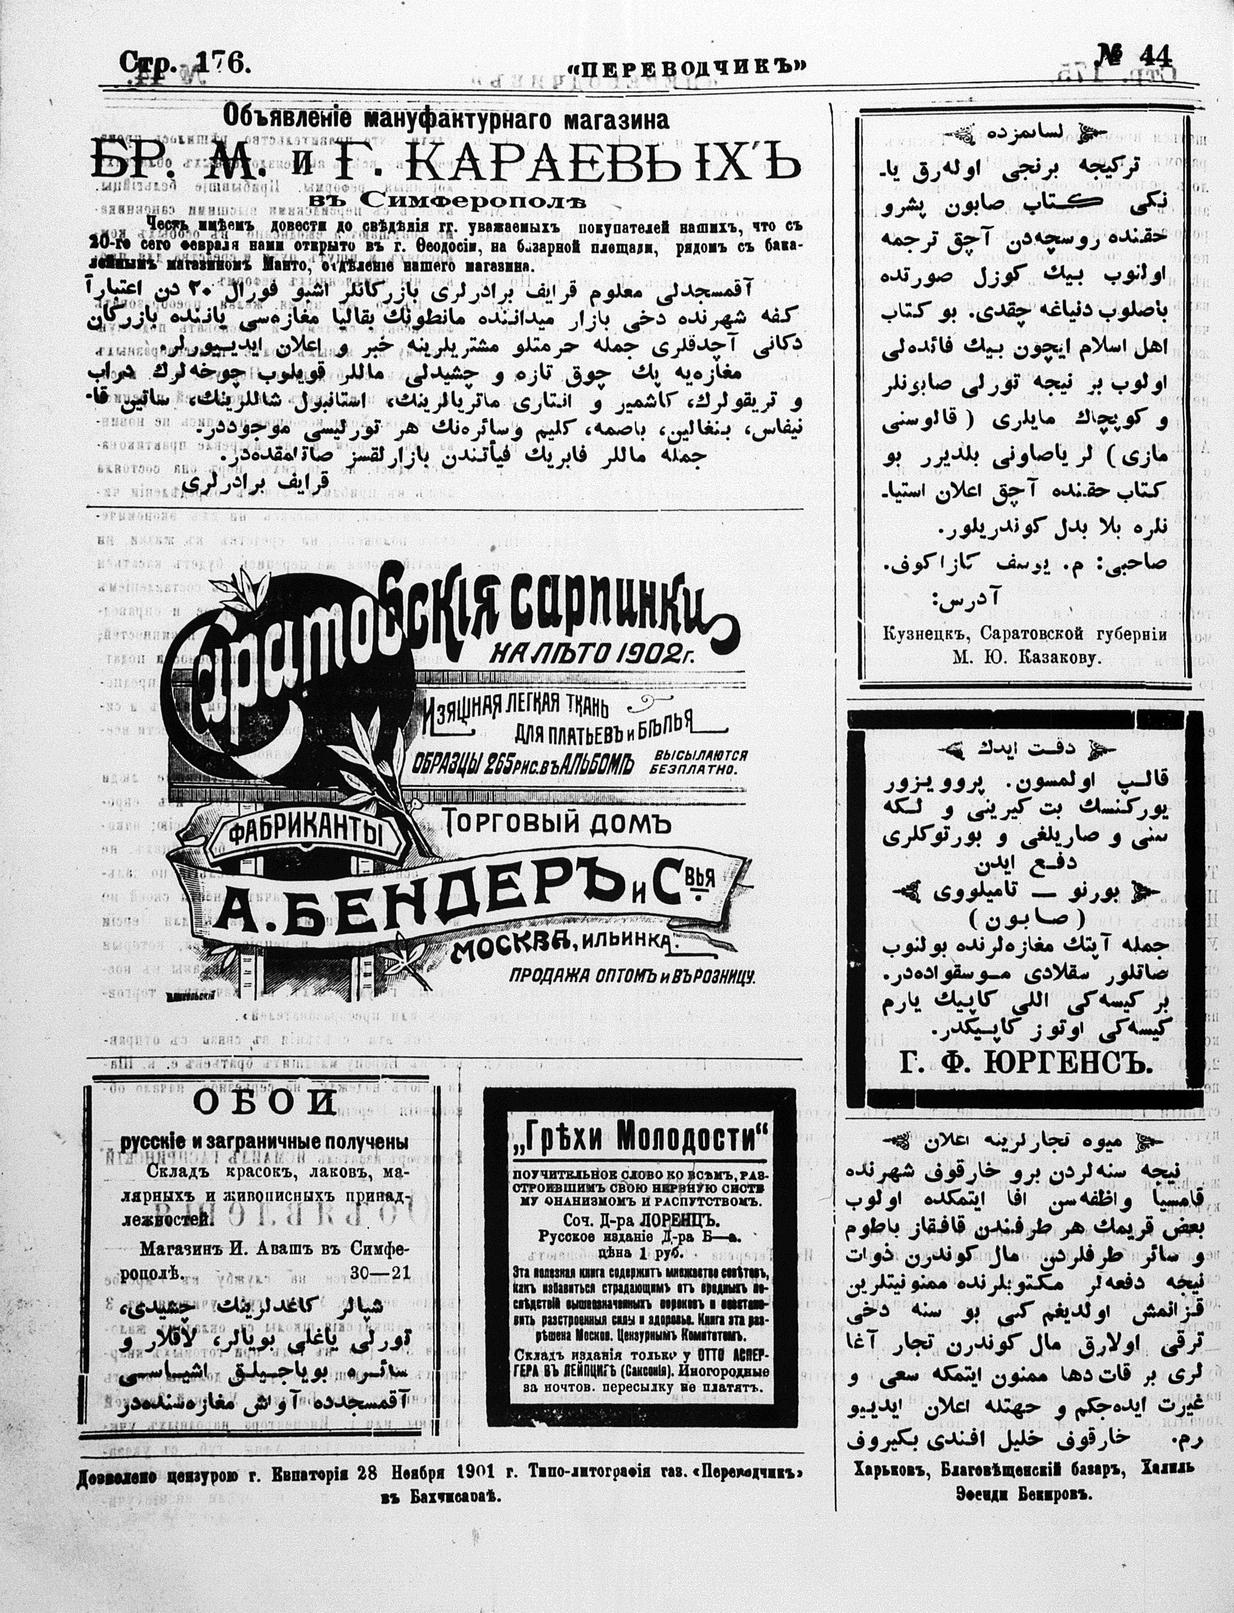 Стр. 176.
«ПЕРЕВОДЧИКЪ»
№ 44
Объявленіе мануфактурнаго магазина
БР. М. и Г. КАРАЕВЫХЪ
въ Симферополѣ
Честь имѣемъ довести до свѣдѣнія гг. уважаемыхъ покупателей нашихъ, что съ
20-го сего февраля нами открыто въ г. Ѳеодосіи, на базарной площади, рядомъ съ бака-
лейнымъ магазиномъ Манто, отдѣленіе нашего магазина.
آقمسجدلی معلوم قرایف برادرلری بازرکانلر اشبو فورال ٢٠ دن اعتباراً
کفه شهرنده دخی بازار میداننده مانطونك بقالیا مغازه‌سی یاننده بازرکان
دکانی آچدقلری جمله حرمتلو مشتریلرینه خبر و اعلان ایدییورلر.
مغازه‌یه پك چوق تازه و چشیدلی ماللر قویلوب چوخه‌لرك دراب
و تریقولرك، کاشمیر و انتاری ماتریالرینك، استانبول شاللرینك، ساتین قا-
نیفاس، بنغالین، باصمه، کلیم وسائره‌نك هر تورلیسی موجوددر.
جمله ماللر فابریك فیأتندن بازارلقسز صاتلمقده‌در.
قرایف برادرلری
Саратовскія сарпинки
НА ЛѢТО 1902 г.
ИЗЯЩНАЯ ЛЕГКАЯ ТКАНЬ
ДЛЯ ПЛАТЬЕВЪ и БѢЛЬЯ
ОБРАЗЦЫ 265 РИС. ВЪ АЛЬБОМѢ ВЫСЫЛАЮТСЯ
БЕЗПЛАТНО.
ФАБРИКАНТЫ
ТОРГОВЫЙ ДОМЪ
А. БЕНДЕРЪ и СВЬЯ
МОСКВА, ИЛЬИНКА.
ПРОДАЖА ОПТОМЪ и ВЪ РОЗНИЦУ.
ОБОИ
русскіе и заграничные получены
Складъ красокъ, лаковъ, ма-
лярныхъ и живописныхъ принад-
лежностей.
Магазинъ И. Авашъ въ Симфе-
рополѣ. 30—21
شپالر کاغدلرینك چشیدی،
تورلی یاغلی بویالر، لاقلار و
سائره بویاجیلق اشیاسی
آقمسجدده آواش مغازه‌سنده‌در
„Грѣхи Молодости“
ПОУЧИТЕЛЬНОЕ СЛОВО КО ВСѢМЪ, РАЗ-
СТРОИВШИМЪ СВОЮ НЕРВНУЮ СИСТЕ
МУ ОНАНИЗМОМЪ И РАСПУТСТВОМЪ.
Соч. Д-ра ЛОРЕНЦЪ.
Русское изданіе Д-ра Б—а.
цѣна 1 руб.
Эта полезная книга содержитъ множество совѣтовъ,
какъ избавиться страдающимъ отъ вредныхъ по-
слѣдствій вышеозначенныхъ пороковъ и возстано-
вить разстроенныя силы и здоровье. Книга эта раз-
рѣшена Москов. Цензурнымъ Комитетомъ.
Складъ изданія только у ОТТО АСПЕР-
ГЕРА ВЪ ЛЕЙПЦИГѢ (Саксонія). Иногородные
за почтов. пересылку не платятъ.
Дозволено цензурою г. Евпаторія 28 Ноября 1901 г. Типо-литографія газ. «Переводчикъ»
въ Бахчисараѣ.
لسانمزده
ترکیجه برنجی اوله‌رق یا-
نکی کتاب صابون پشرو
حقنده روسچه‌دن آچق ترجمه
اولنوب بیك کوزل صورتده
باصلوب دنیاغه چقدی. بو کتاب
اهل اسلام ایچون بیك فائده‌لی
اولوب بر نیچه تورلی صابونلر
و کوپچاك مایلری ( قالوسنی
مازی) لر یاصاونی بلدیرر بو
کتاب حقنده آچق اعلان استیا-
نلره بلا بدل کوندریلور.
صاحبی: م. یوسف کازاکوف.
آدرس:
Кузнецкъ, Саратовской губерніи
М. Ю. Казакову.
دقت ایدك
قالپ اولمسون. پروویزور
یورکنسك بت کیرینی و لکه
سنی و صاریلغی و بورتوکلری
دفع ایدن
بورنو — تامیلووی
( صابون )
جمله آپتك مغازه‌لرنده بولنوب
صاتلور سقلادی موسقواده‌در.
بر کیسه‌کی اللی کاپیك یارم
کیسه‌کی اوتوز کاپیکدر.
Г. Ф. ЮРГЕНСЪ.
میوه تجارلرینه اعلان
نیچه سنه‌لردن برو خارقوف شهرنده
قامسیا وظفه‌سن افا ایتمکده اولوب
بعض قریمك هر طرفندن قافقاز باطوم
و سائر طرفلردن مال کوندرن ذوات
نیچه دفعه‌لر مکتوبلرنده ممنونیتلرین
قزانمش اولدیغم کبی بو سنه دخی
ترقی اولارق مال کوندرن تجار آغا
لری بر قات‌دها ممنون ایتمکه سعی و
غیرت ایده‌جکم و جهتله اعلان ایدییو
رم. خارقوف خلیل افندی بکیروف
Харьковъ, Благовѣщенскій базаръ, Халиль
Эфенди Бекировъ.